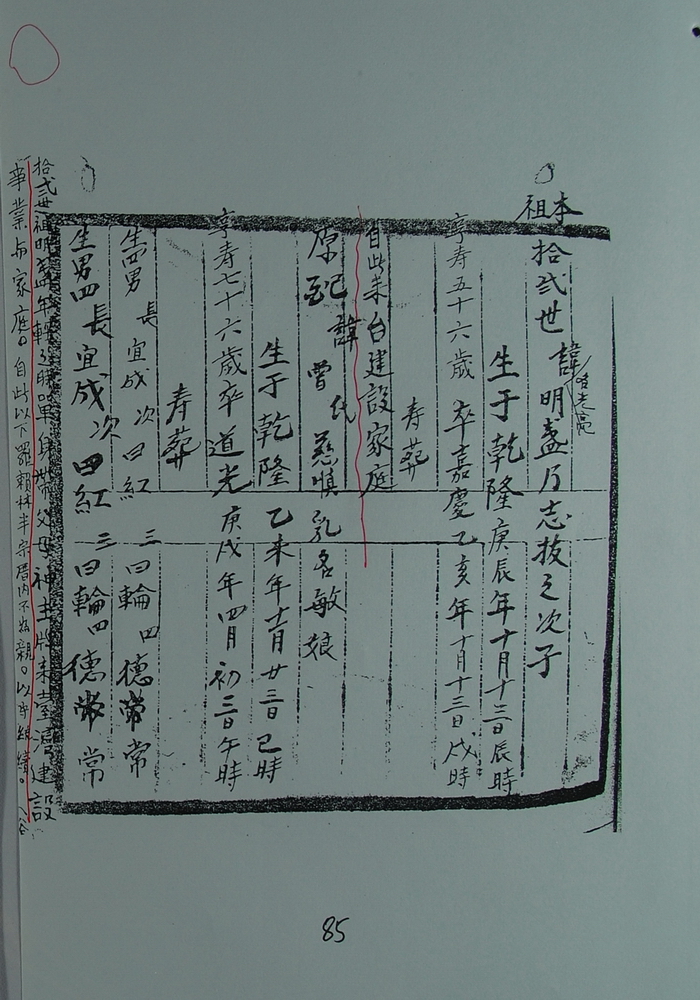 本祖
拾弍世 諱明盞乃志拔之次子
生于乾隆庚辰年十月十三日辰時
享寿五十六歳 卒嘉慶乙亥年十月十三日戌時
寿葬
自此来台建設家庭
原配諱曾氏慈慎乳名敏娘
生于乾隆乙未年十一月廿三日巳時
享寿七十六歳卒道光庚戌年四月初三日午時
寿葬
生四男 長宜成 次曰紅 三曰輪 四德常
生男四 長宜成 次曰紅 三曰輪 四德常
拾弍世祖明盞年轉之時單身帶父母神主牌来臺湾建設
事業与家庭。自此以下
85